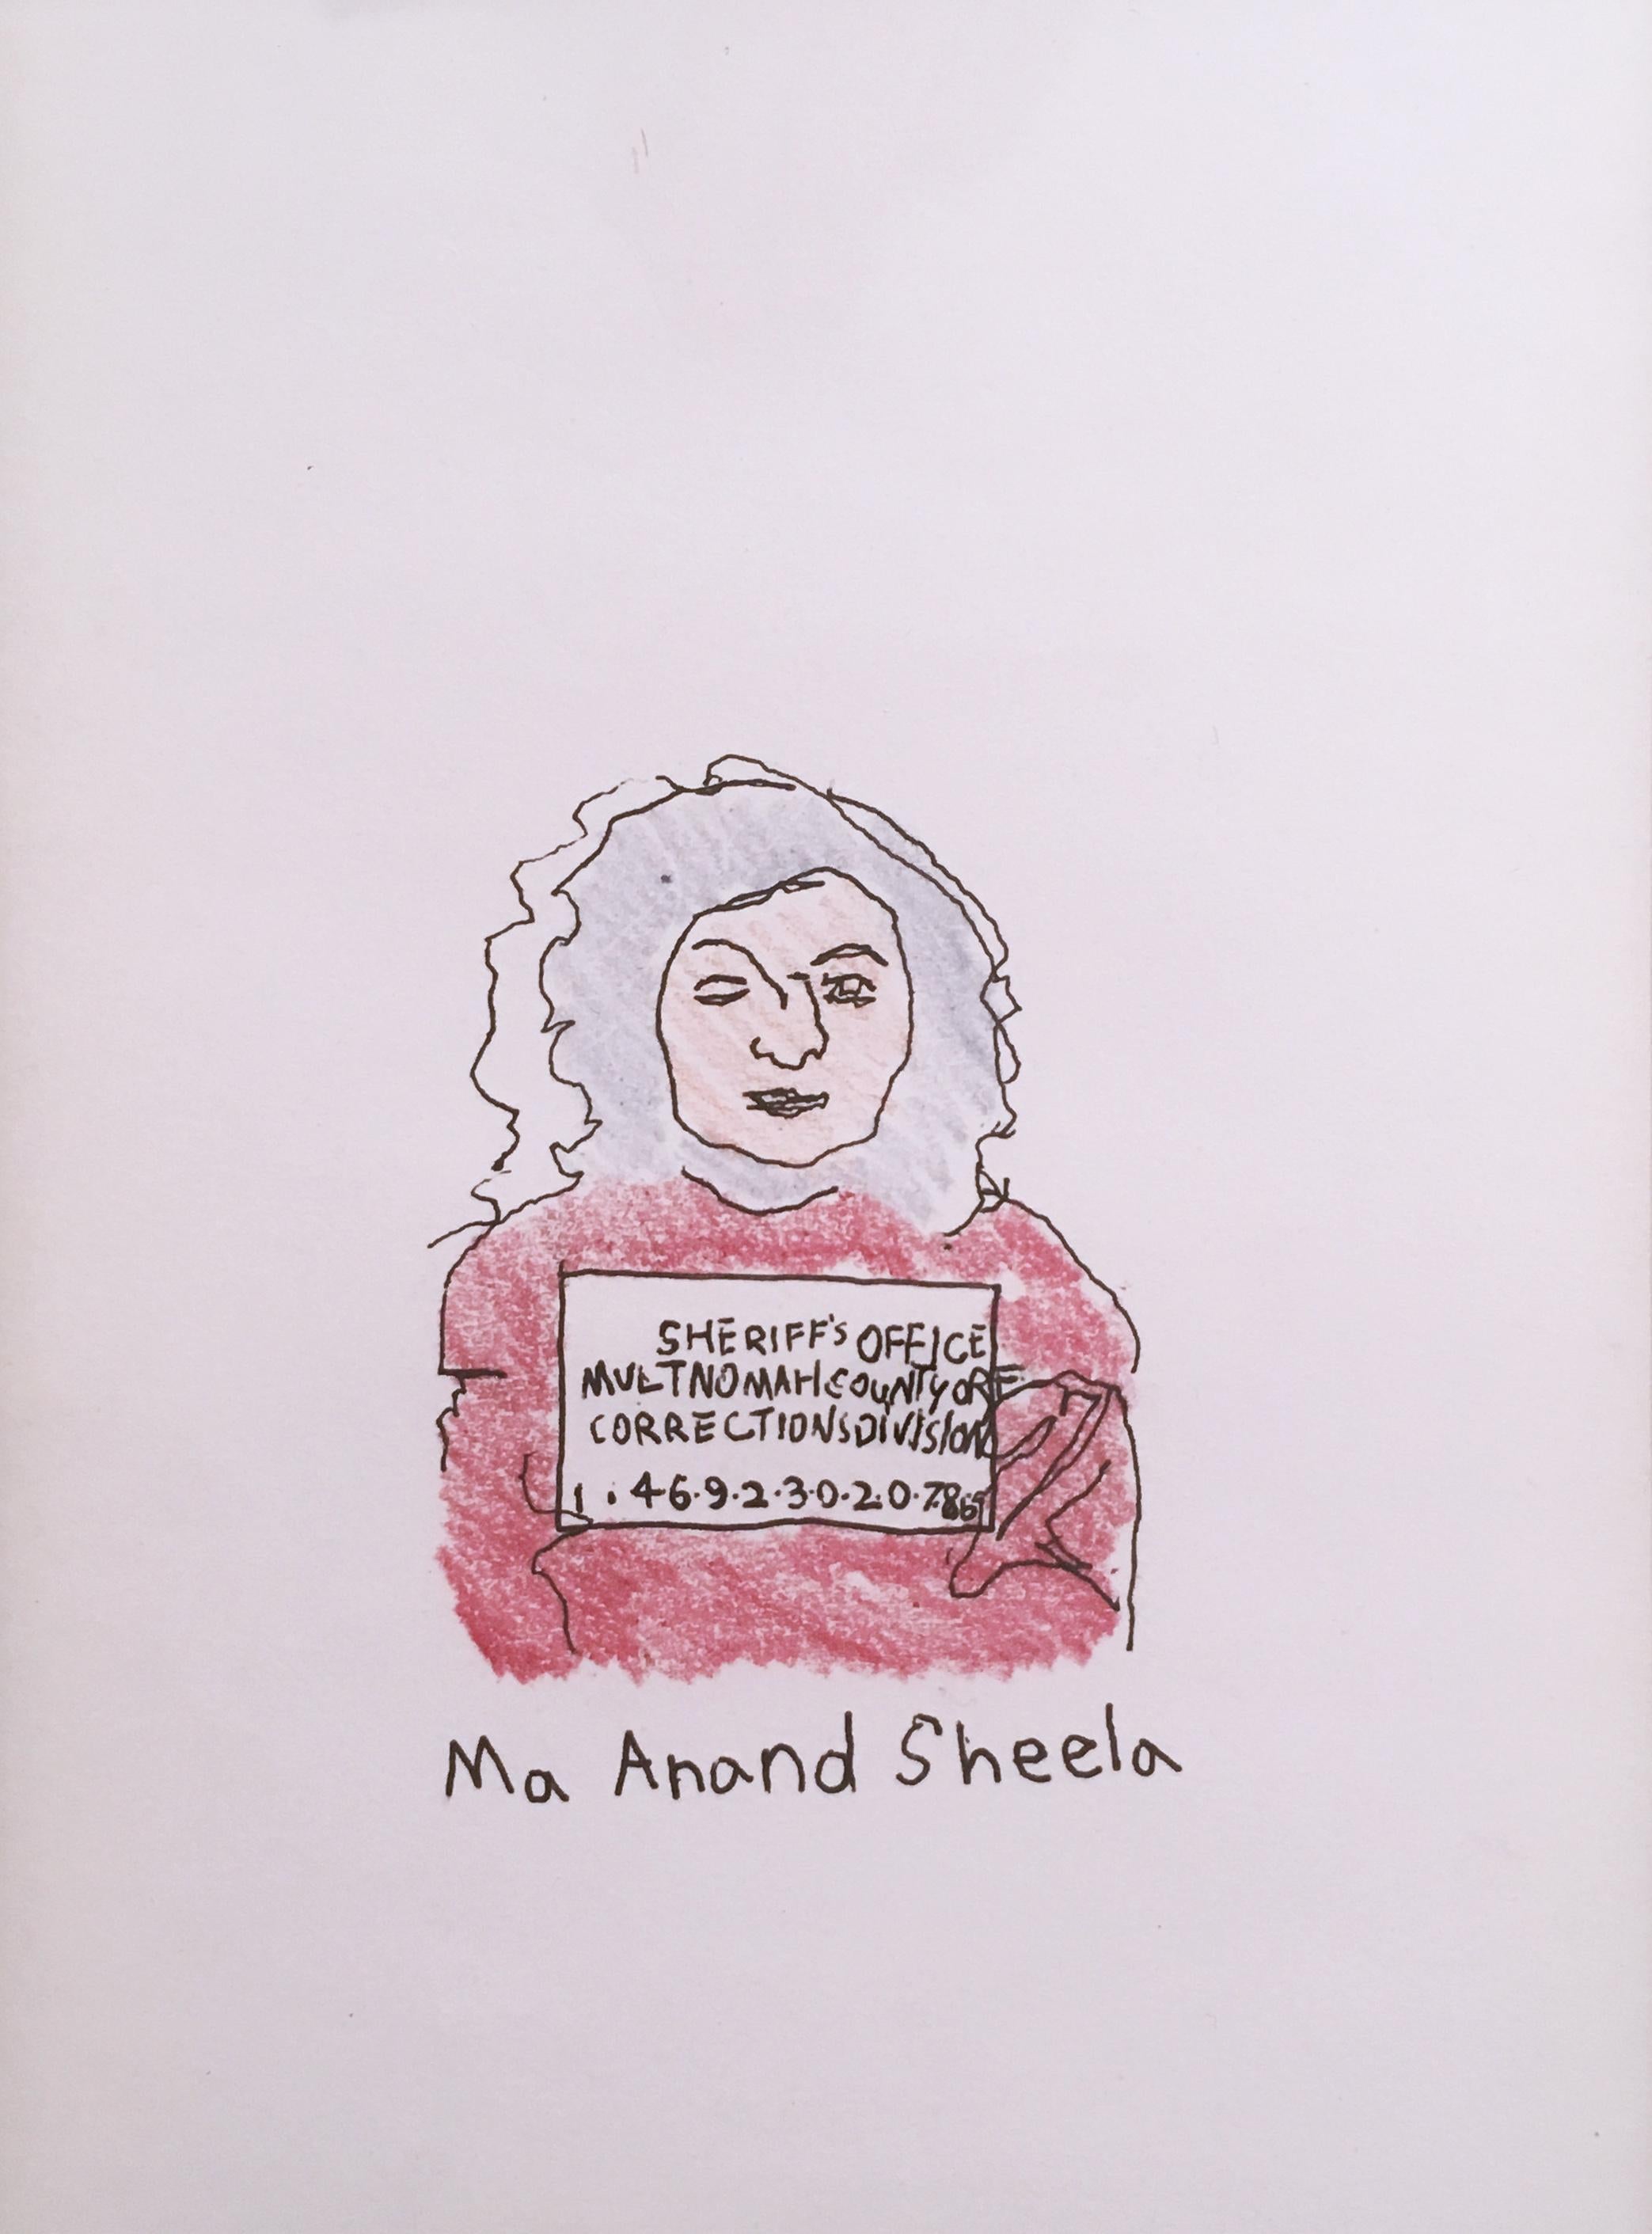 SHERIFF'S OFFICE
MULTNOMAH COUNTY ORE
CORRECTIONS DIVISION
1.46.9.2.3.0.2.0.7869
Ma Anand Sheela